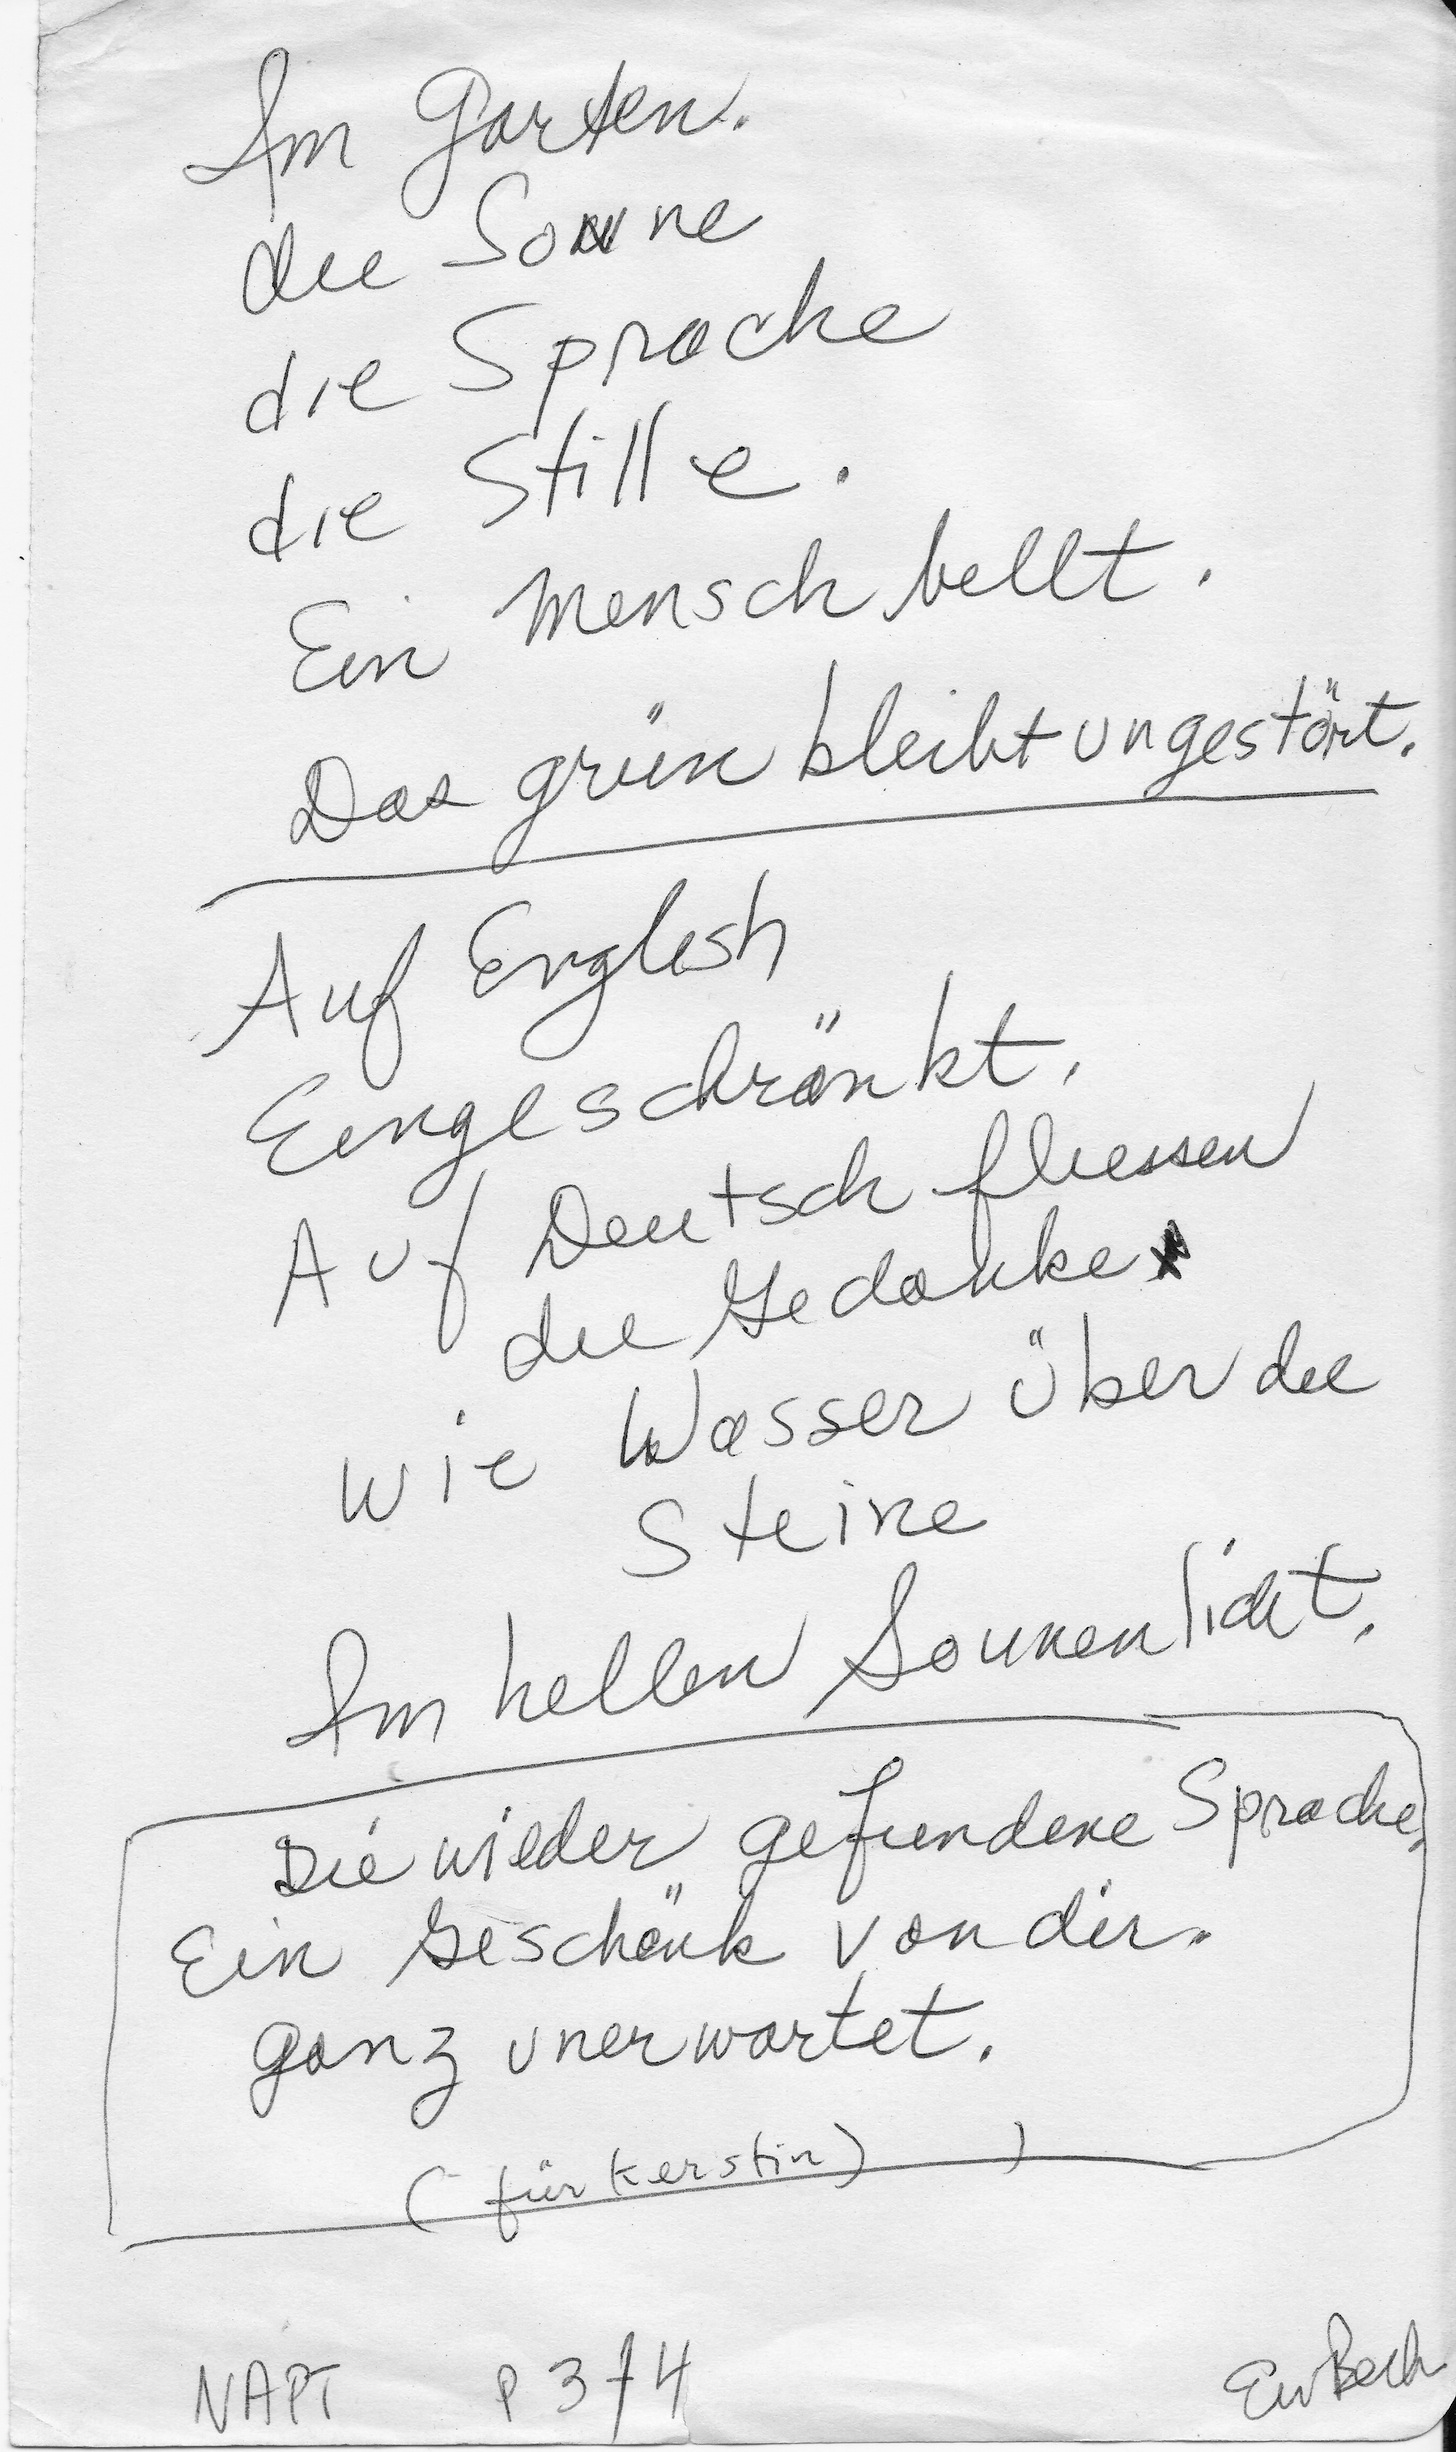 Im Garten.
die Sonne
die Sprache
die Stille.
Ein Mensch bellt.
Das grün bleibt ungestört.
Auf English
Eingeschränkt.
Auf Deutsch fliessen
die Gedanken
wie Wasser über die
Steine
Im hellen Sonnenlicht.
Die wieder gefundene Sprache,
Ein Geschënk von dir.
ganz unerwartet.
(für Kerstin)
NAPT P 3 f 4